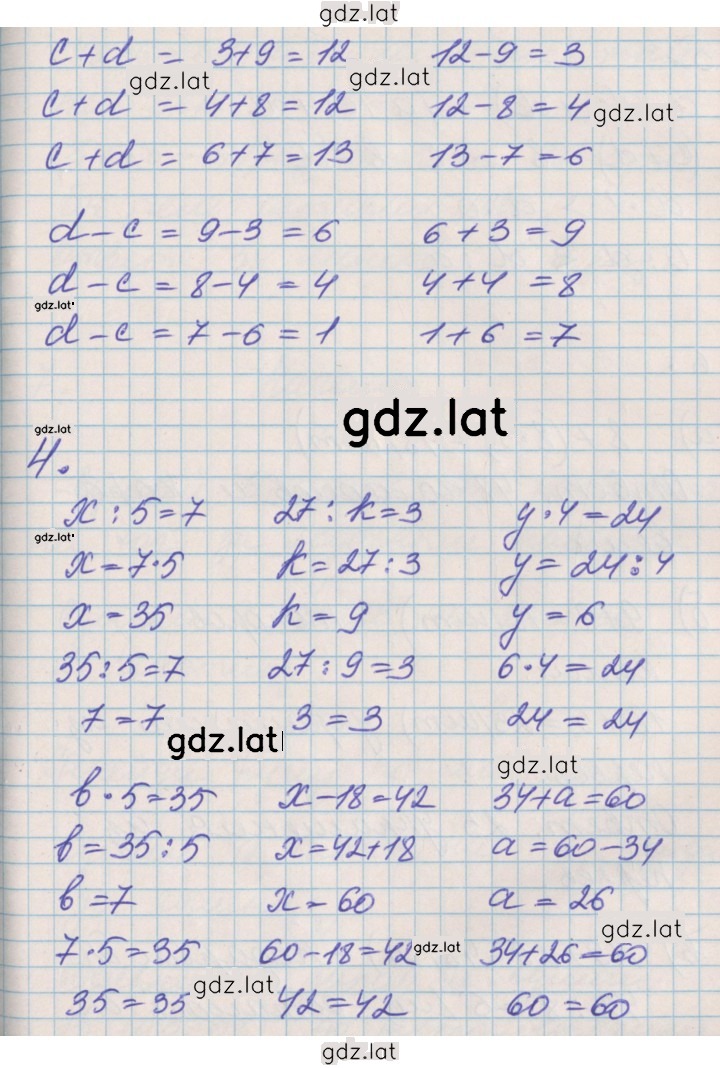 gdz.lat
c+d = 3+9 = 12 12-9 = 3
gdz.lat gdz.lat
c+d = 4+8 = 12 12-8 = 4
gdz.lat
c+d = 6+7 = 13 13-7 = 6
d-c = 9-3 = 6 6+3 = 9
d-c = 8-4 = 4 4+4 = 8
gdz.lat
d-c = 7-6 = 1 1+6 = 7
gdz.lat
gdz.lat
4.
x : 5 = 7 27 : k = 3 y · 4 = 24
gdz.lat
x = 7 · 5 k = 27 : 3 y = 24 : 4
x = 35 k = 9 y = 6
35 : 5 = 7 27 : 9 = 3 6 · 4 = 24
7 = 7 3 = 3 24 = 24
gdz.lat
gdz.lat
в · 5 = 35 x - 18 = 42 34 + a = 60
в = 35 : 5 x = 42 + 18 a = 60 - 34
в = 7 x = 60 a = 26
gdz.lat
7 · 5 = 35 60 - 18 = 42 34 + 26 = 60
gdz.lat
gdz.lat
35 = 35 42 = 42 60 = 60
gdz.lat